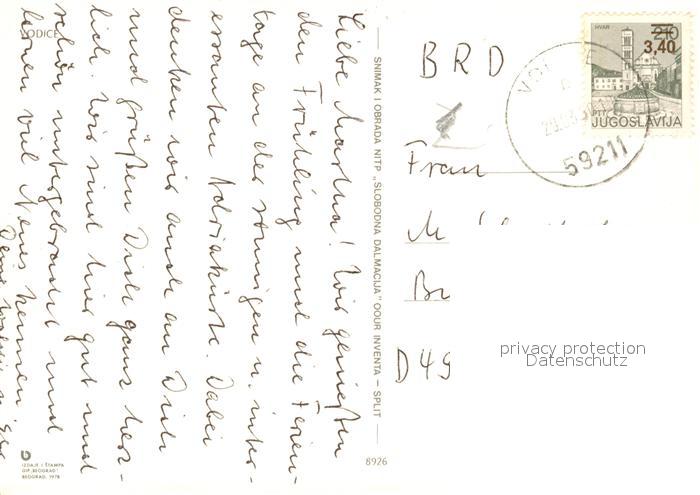 VODICE
Liebe Martina! Wir genießen
den Frühling und die Ferien-
tage an der sonnigen u. inter-
essanten Adriaküste. Dabei
denken wir auch an Dich
und grüßen Dich ganz herz-
lich. Wir sind hier gut und
schön untergebracht und
lernen viel Neues kennen
IZDAJE I ŠTAMPA
GIP „BEOGRAD"
BEOGRAD, 1978
SNIMAK I OBRADA NITP „SLOBODNA DALMACIJA" OOUR INVENTA – SPLIT
8926
HVAR
2,10
3,40
PTT
JUGOSLAVIJA
59211
BRD
Frau
M
Br
D 49
privacy protection
Datenschutz